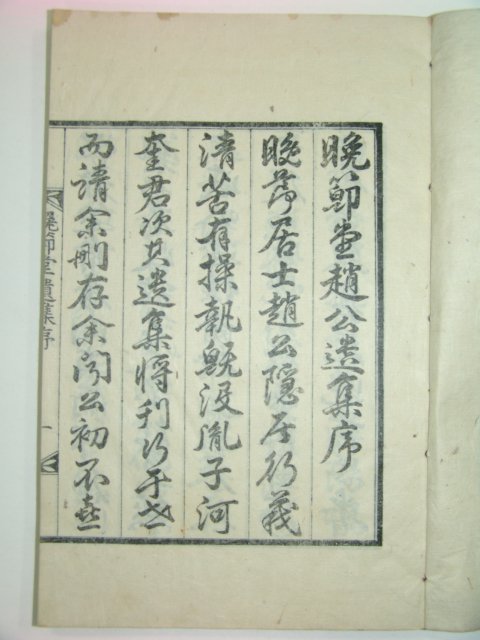 晩節堂趙公遺集序
晩節居士趙公隱居行義
淸苦有操執旣沒胤子河
奎君次其遺集將刊行于世
而請余刪存余聞公初不喜
晩節堂遺集序 一